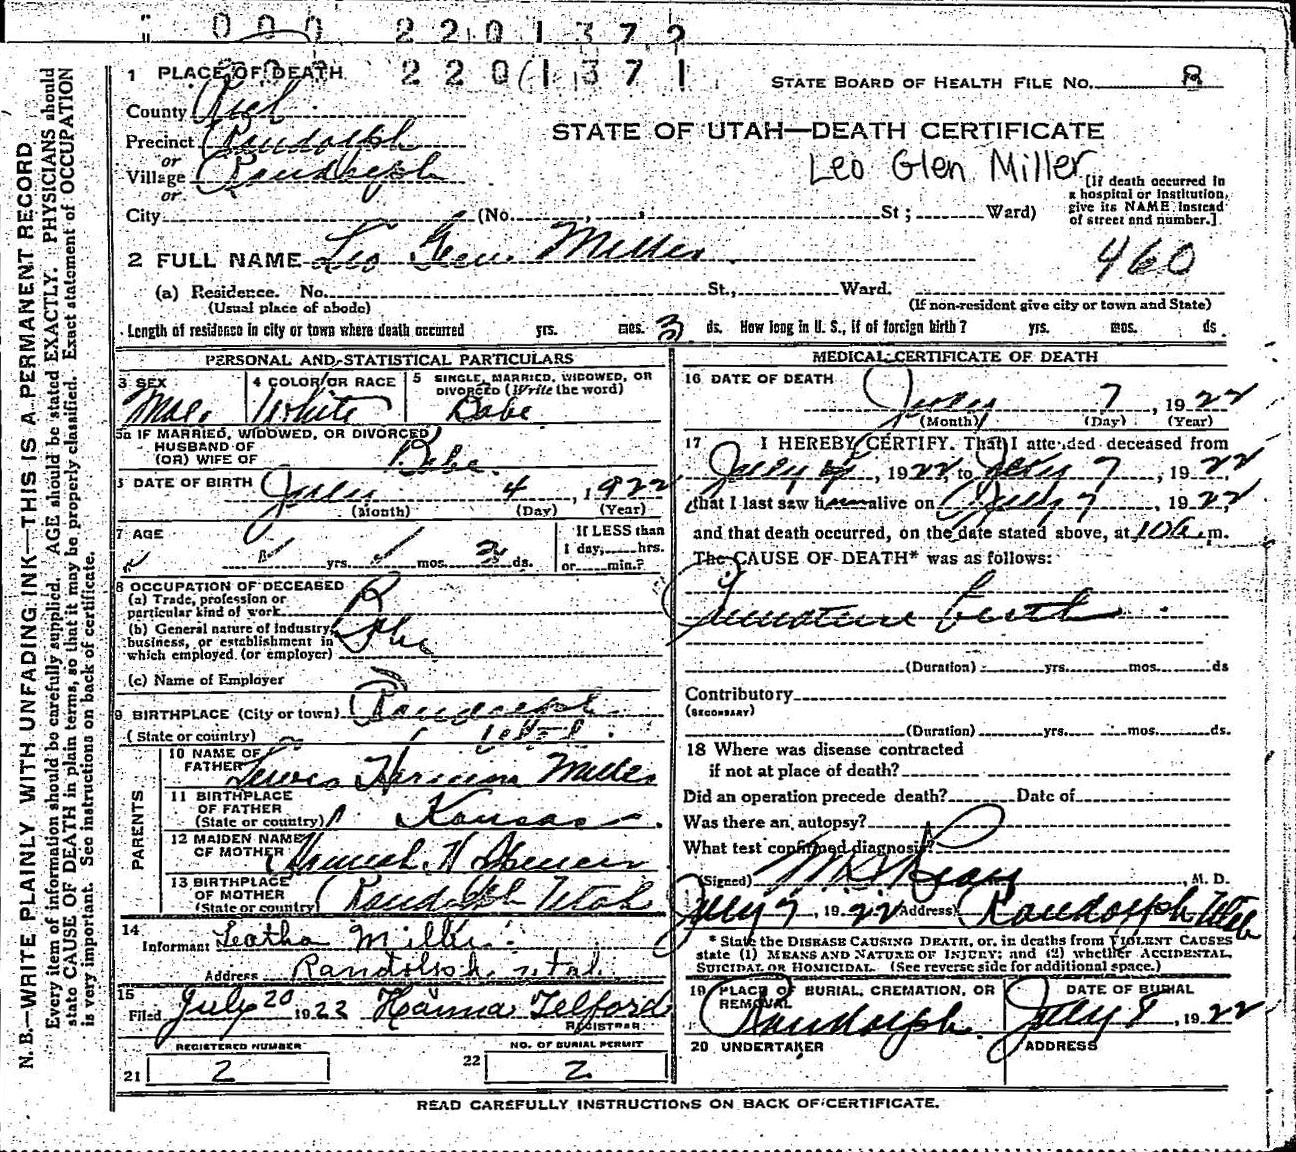 000 2201372
000 2201371
1 PLACE OF DEATH
STATE BOARD OF HEALTH FILE NO. 8
County Rich
STATE OF UTAH—DEATH CERTIFICATE
Precinct Randolph
or
Leo Glen Miller
Village Randolph
or
[If death occurred in a hospital or institution, give its NAME instead of street and number.]
City (No. , St ; Ward)
2 FULL NAME Leo Glen Miller
460
(a) Residence. No. St., Ward.
(Usual place of abode) (If non-resident give city or town and State)
Length of residence in city or town where death occurred yrs. mos. 3 ds. How long in U. S., if of foreign birth? yrs. mos. ds.
PERSONAL AND STATISTICAL PARTICULARS
3 SEX
Male
4 COLOR OR RACE
White
5 SINGLE, MARRIED, WIDOWED, OR DIVORCED (Write the word)
Babe
5a IF MARRIED, WIDOWED, OR DIVORCED
HUSBAND OF
(OR) WIFE OF Babe
DATE OF BIRTH July 4, 1922
(Month) (Day) (Year)
7 AGE
yrs. mos. 3 ds.
If LESS than
1 day, hrs.
or min.?
8 OCCUPATION OF DECEASED
(a) Trade, profession or
particular kind of work
(b) General nature of industry,
business, or establishment in
which employed (or employer)
Babe
(c) Name of Employer
9 BIRTHPLACE (City or town) Randolph
(State or country) Utah.
PARENTS
10 NAME OF
FATHER Lewis Herman Miller
11 BIRTHPLACE
OF FATHER
(State or country) Kansas
12 MAIDEN NAME
OF MOTHER Spencer
13 BIRTHPLACE
OF MOTHER
(State or country) Randolph Utah
14
Informant Leatha Miller
Address Randolph Utah
15
Filed July 20 1922 Hanna Telford
REGISTRAR
REGISTERED NUMBER
21 2
NO. OF BURIAL PERMIT
22 2
MEDICAL CERTIFICATE OF DEATH
16 DATE OF DEATH
July 7, 1922
(Month) (Day) (Year)
17 I HEREBY CERTIFY. That I attended deceased from
July 4, 1922, to July 7, 1922
that I last saw him alive on July 7, 1922
and that death occurred, on the date stated above, at 10 a.m.
The CAUSE OF DEATH* was as follows:
Premature birth
(Duration) yrs. mos. ds
Contributory
(SECONDARY)
(Duration) yrs. mos. ds.
18 Where was disease contracted
if not at place of death?
Did an operation precede death? Date of
Was there an autopsy?
What test confirmed diagnosis?
(Signed) , M. D.
July 7, 1922 (Address) Randolph Utah
* State the DISEASE CAUSING DEATH, or, in deaths from VIOLENT CAUSES
state (1) MEANS AND NATURE OF INJURY; and (2) whether ACCIDENTAL,
SUICIDAL OR HOMICIDAL. (See reverse side for additional space.)
19 PLACE OF BURIAL, CREMATION, OR
REMOVAL
Randolph
DATE OF BURIAL
July 8, 1922
20 UNDERTAKER
ADDRESS
READ CAREFULLY INSTRUCTIONS ON BACK OF CERTIFICATE.
N. B.—WRITE PLAINLY, WITH UNFADING INK—THIS IS A PERMANENT RECORD
Every item of information should be carefully supplied. AGE should be stated EXACTLY. PHYSICIANS should
state CAUSE OF DEATH in plain terms, so that it may be properly classified. Exact statement of OCCUPATION
is very important. See instructions on back of certificate.